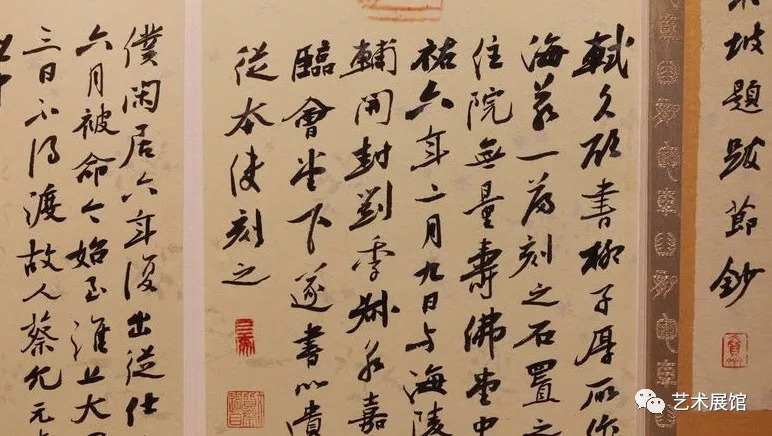 東坡題跋節鈔
軾久欲書柳子厚所作
海若一篇刻之石置之
住院無量壽佛堂中
祐六年二月九日與海陵
輔開封劉季孫永嘉
臨會堂下遂書以遺
從本使刻之
僕閑居六年復出從仕
六月被命今始至淮上大
三日不得渡故人蔡允元
艺术展馆